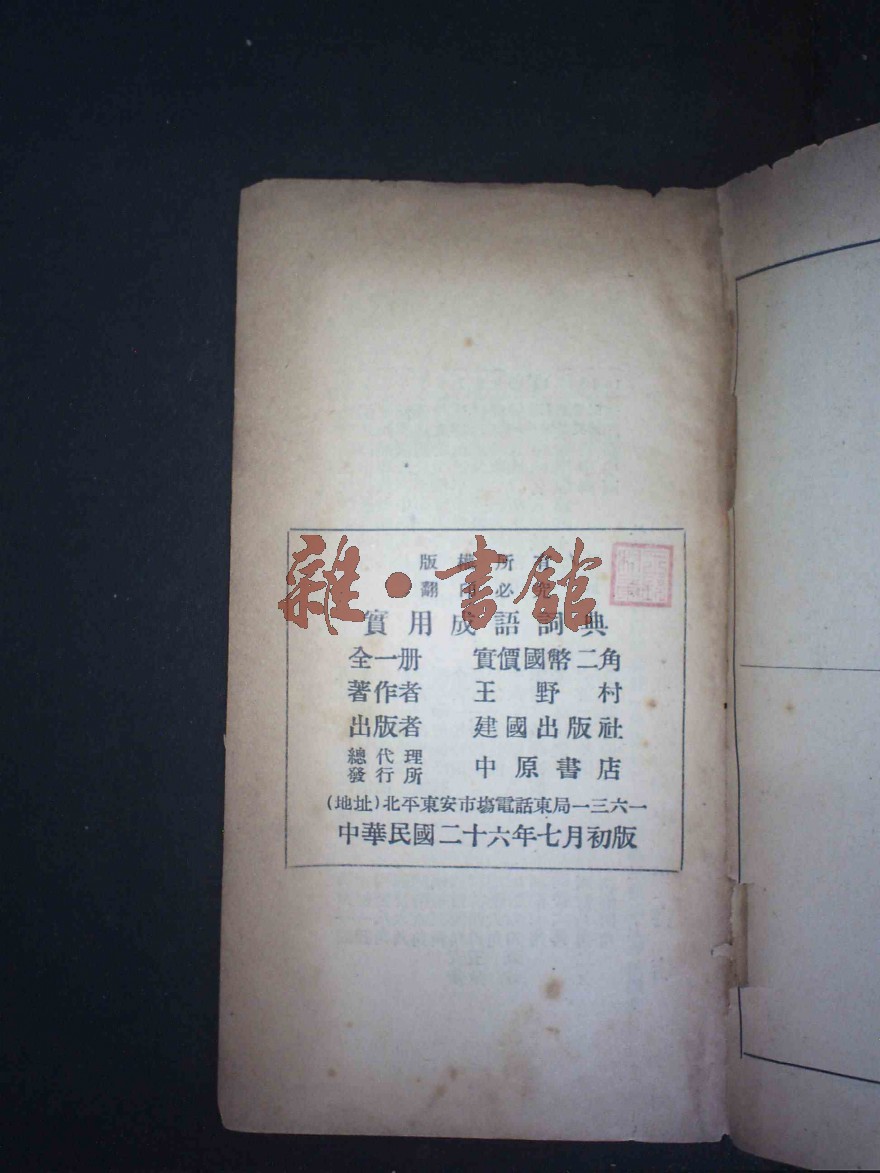 版權所有
翻印必究
實用成語詞典
全一册 實價國幣二角
著作者 王野村
出版者 建國出版社
總代理
發行所
中原書店
(地址)北平東安市場電話東局一三六一
中華民國二十六年七月初版
雜·書館